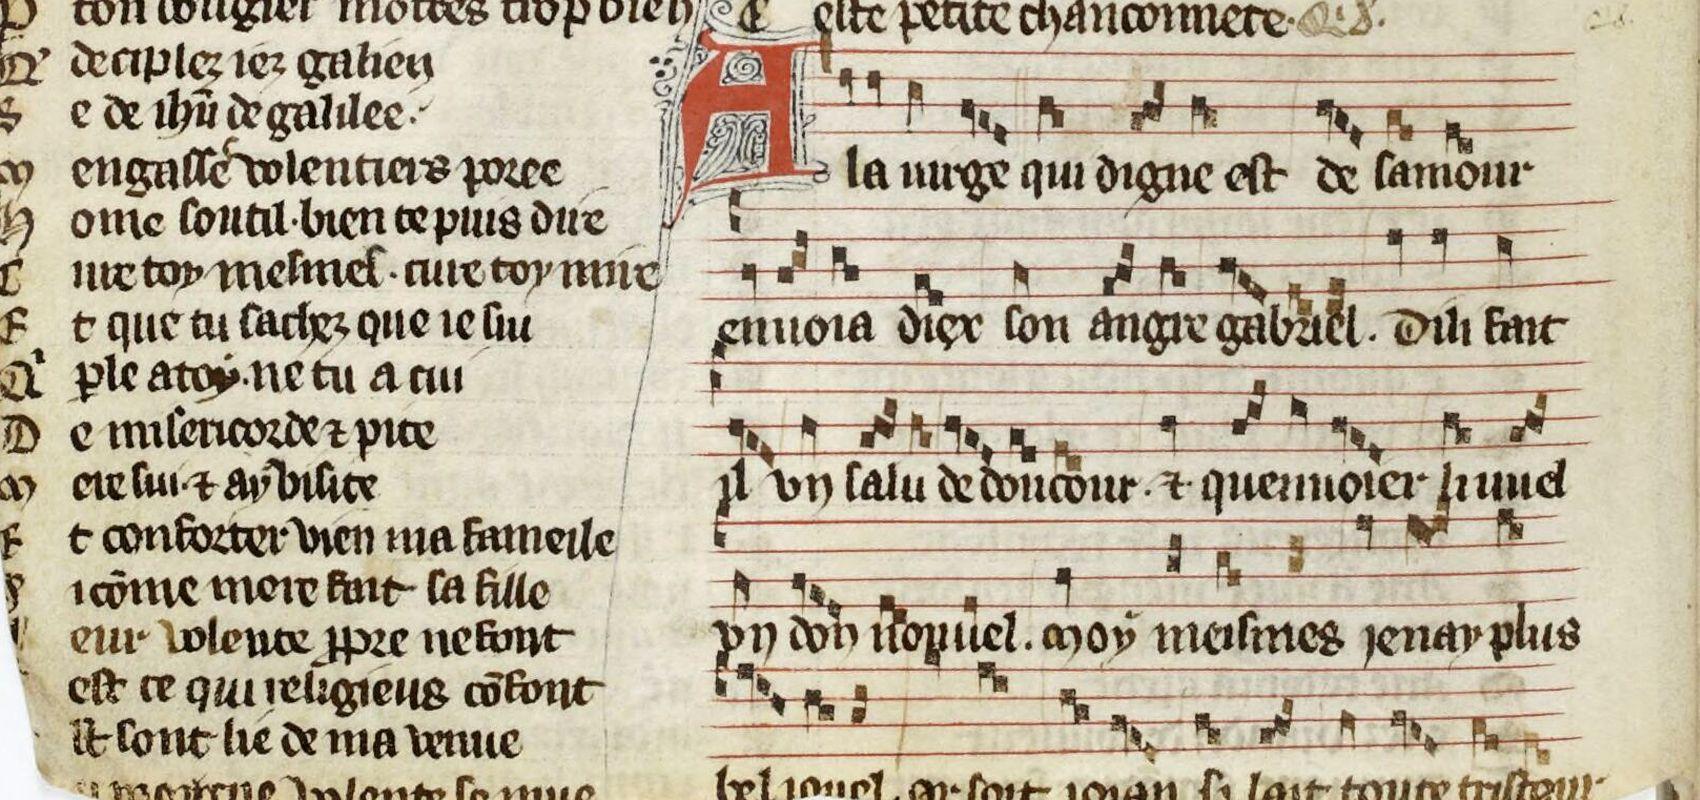 ton cougier mottes trop bien
Deciplez iez galien
Se de ihū de galilee.
Mengasse volentiers poree
Home soutil. bien te puis dire
Cure toy mesmes. cure toy mire
Et que tu sachez que ie sui
Aple a toy. ne tu a cui
De misericorde ⁊ pite
Mere sui. ⁊ ay visite
Et conforter vien ma fameile
Sicōme mere fait sa fille
leur volente ppre ne font
est ce qui religieus cōfont
Et sont lie de ma venue
Ceste petite chanconnete.
A la uirge qui digne est de samour
enuoia diex son angre gabriel. Dili fait
il vn salu de doucour. ⁊ quennoier li uuel
vn don nouuel. moẏ meismes ienay plus
bel iouel. or soit ioian si lait toute tristeur